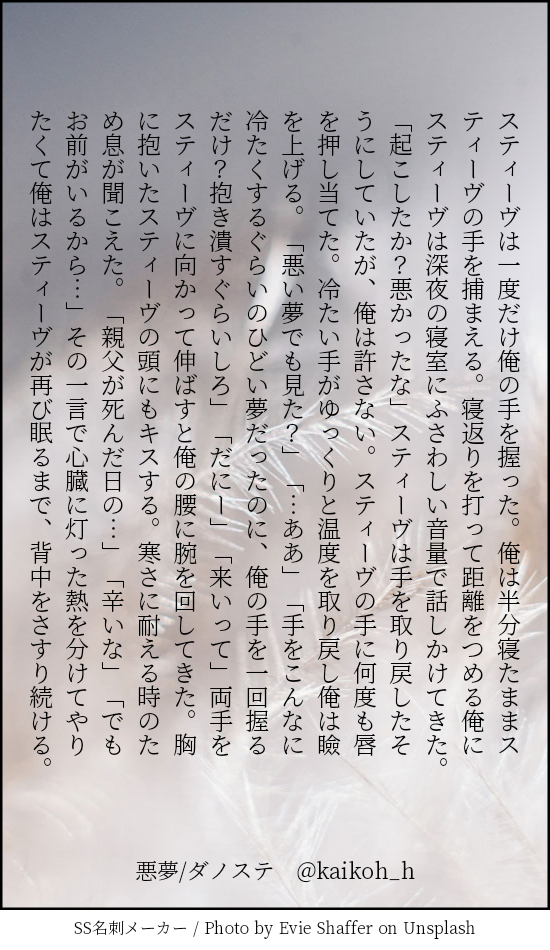 スティーヴは一度だけ俺の手を握った。俺は半分寝たままス
ティーヴの手を捕まえる。寝返りを打って距離をつめる俺に
スティーヴは深夜の寝室にふさわしい音量で話しかけてきた。
「起こしたか？悪かったな」スティーヴは手を取り戻したそ
うにしていたが、俺は許さない。スティーヴの手に何度も唇
を押し当てた。冷たい手がゆっくりと温度を取り戻し俺は瞼
を上げる。「悪い夢でも見た？」「…ああ」「手をこんなに
冷たくするぐらいのひどい夢だったのに、俺の手を一回握る
だけ？抱き潰すぐらいしろ」「だにー」「来いって」両手を
スティーヴに向かって伸ばすと俺の腰に腕を回してきた。胸
に抱いたスティーヴの頭にもキスする。寒さに耐える時のた
め息が聞こえた。「親父が死んだ日の…」「辛いな」「でも
お前がいるから…」その一言で心臓に灯った熱を分けてやり
たくて俺はスティーヴが再び眠るまで、背中をさすり続ける。
悪夢/ダノステ　@kaikoh_h
SS名刺メーカー / Photo by Evie Shaffer on Unsplash